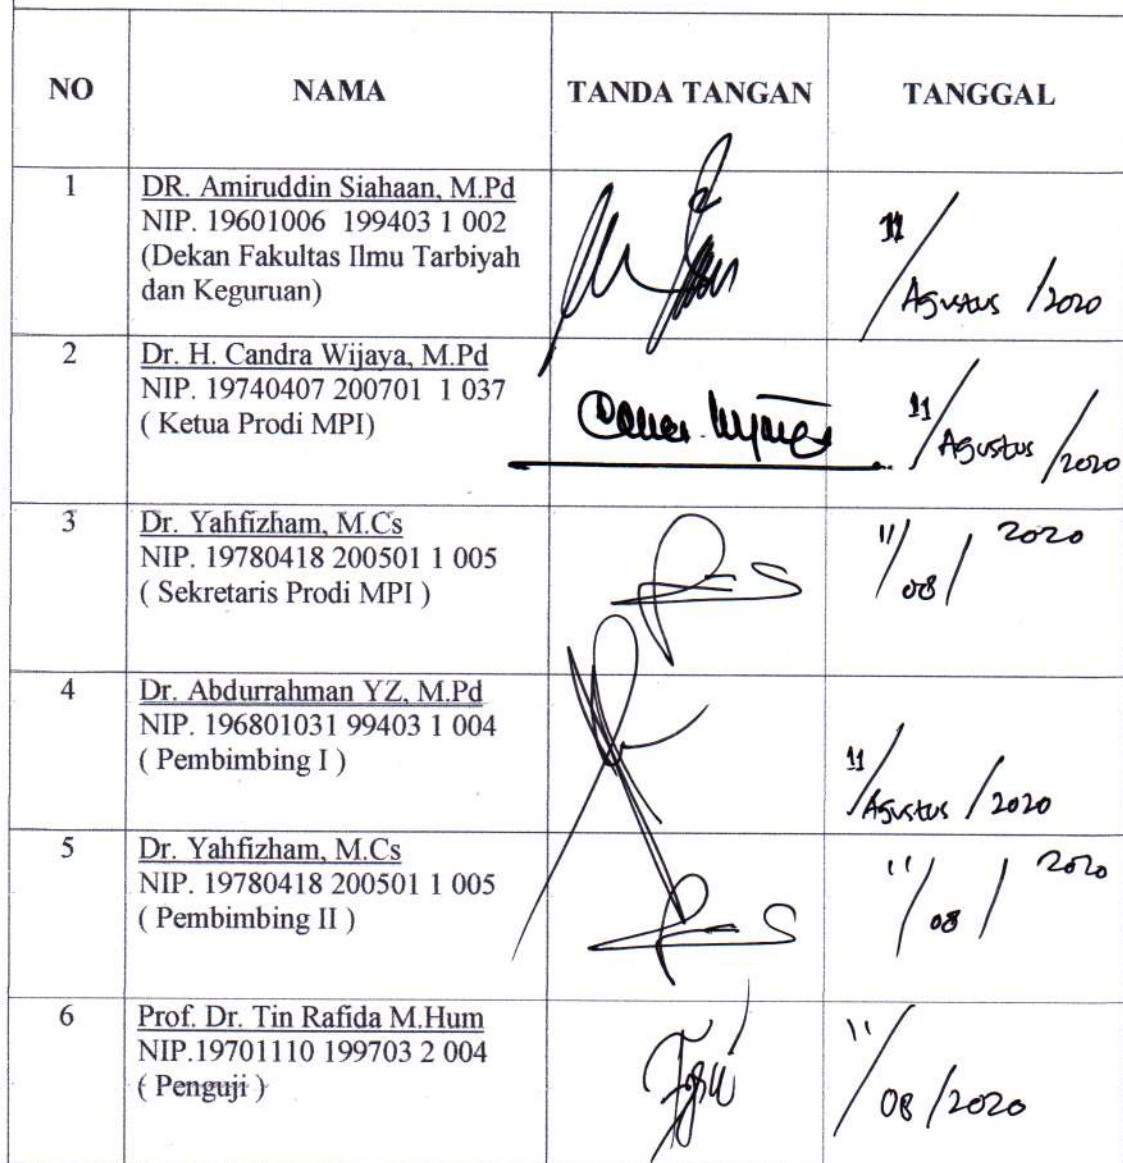 NO NAMA TANDA TANGAN TANGGAL
1 DR. Amiruddin Siahaan, M.Pd
NIP. 19601006 199403 1 002
(Dekan Fakultas Ilmu Tarbiyah
dan Keguruan)
11/Agustus/2020
2 Dr. H. Candra Wijaya, M.Pd
NIP. 19740407 200701 1 037
( Ketua Prodi MPI)
11/Agustus/2020
3 Dr. Yahfizham, M.Cs
NIP. 19780418 200501 1 005
( Sekretaris Prodi MPI )
11/08/2020
4 Dr. Abdurrahman YZ, M.Pd
NIP. 196801031 99403 1 004
( Pembimbing I )
11/Agustus/2020
5 Dr. Yahfizham, M.Cs
NIP. 19780418 200501 1 005
( Pembimbing II )
11/08/2020
6 Prof. Dr. Tin Rafida M.Hum
NIP.19701110 199703 2 004
( Penguji )
11/08/2020